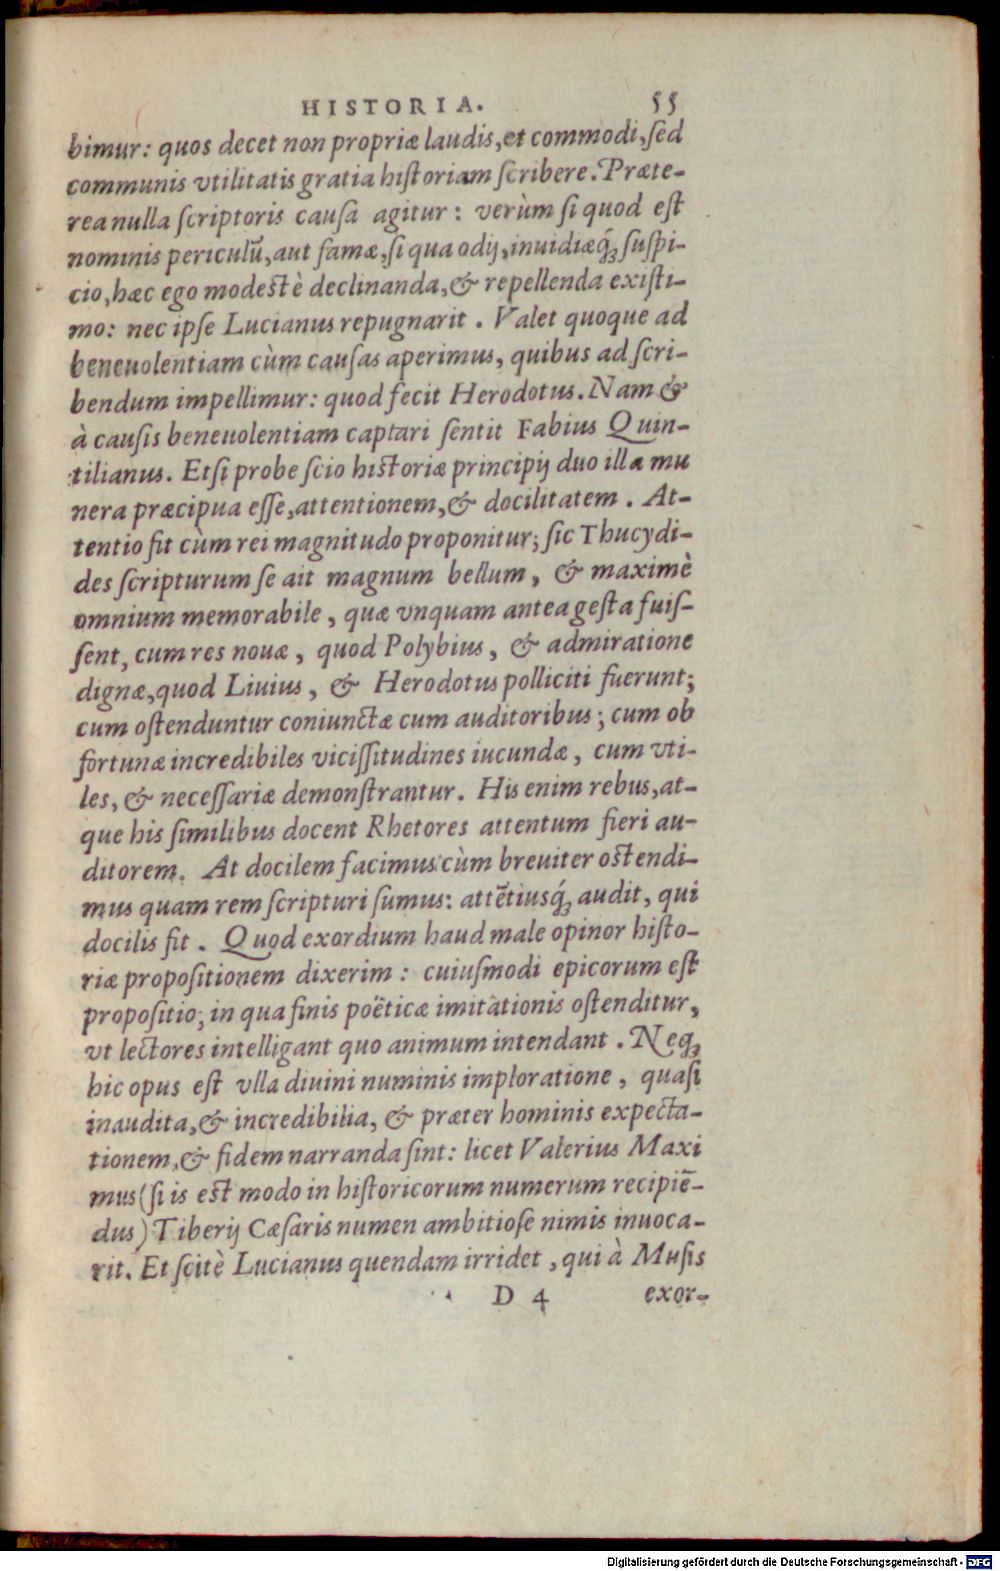 HISTORIA. 55
bimur: quos decet non propriæ laudis, et commodi, ſed
communis vtilitatis gratia hiſtoriam ſcribere. Præte-
rea nulla ſcriptoris cauſa agitur: verùm ſi quod eſt
nominis periculũ, aut famæ, ſi qua odij, inuidiæq́ꝫ ſuſpi-
cio, hæc ego modeſtè declinanda, & repellenda exiſti-
mo: nec ipſe Lucianus repugnarit. Valet quoque ad
beneuolentiam cùm cauſas aperimus, quibus ad ſcri-
bendum impellimur: quod fecit Herodotus. Nam &
à cauſis beneuolentiam captari ſentit Fabius Quin-
tilianus. Etſi probe ſcio hiſtoriæ principij duo illa mu
nera præcipua eſſe, attentionem, & docilitatem. At-
tentio fit cùm rei magnitudo proponitur; ſic Thucydi-
des ſcripturum ſe ait magnum bellum, & maximè
omnium memorabile, quæ vnquam antea geſta fuiſ-
ſent, cum res nouæ, quod Polybius, & admiratione
dignæ, quod Liuius, & Herodotus polliciti fuerunt;
cum oſtenduntur coniunctæ cum auditoribus; cum ob
fortunæ incredibiles viciſſitudines iucundæ, cum vti-
les, & neceſſariæ demonſtrantur. His enim rebus, at-
que his ſimilibus docent Rhetores attentum fieri au-
ditorem. At docilem facimus cùm breuiter oſtendi-
mus quam rem ſcripturi ſumus: attẽtiusq́ꝫ audit, qui
docilis fit. Quod exordium haud male opinor hiſto-
riæ propoſitionem dixerim: cuiuſmodi epicorum eſt
propoſitio; in qua finis poëticæ imitàtionis oſtenditur,
vt lectores intelligant quo animum intendant. Neqꝫ
hic opus eſt vlla diuini numinis imploratione, quaſi
inaudita, & incredibilia, & præter hominis expecta-
tionem, & fidem narranda ſint: licet Valerius Maxi
mus (ſi is eſt modo in hiſtoricorum numerum recipiẽ-
dus) Tiberij Cæſaris numen ambitioſe nimis inuoca-
rit. Et ſcitè Lucianus quendam irridet, qui à Muſis
D 4 exor-
Digitalisierung gefördert durch die Deutsche Forschungsgemeinschaft - DFG